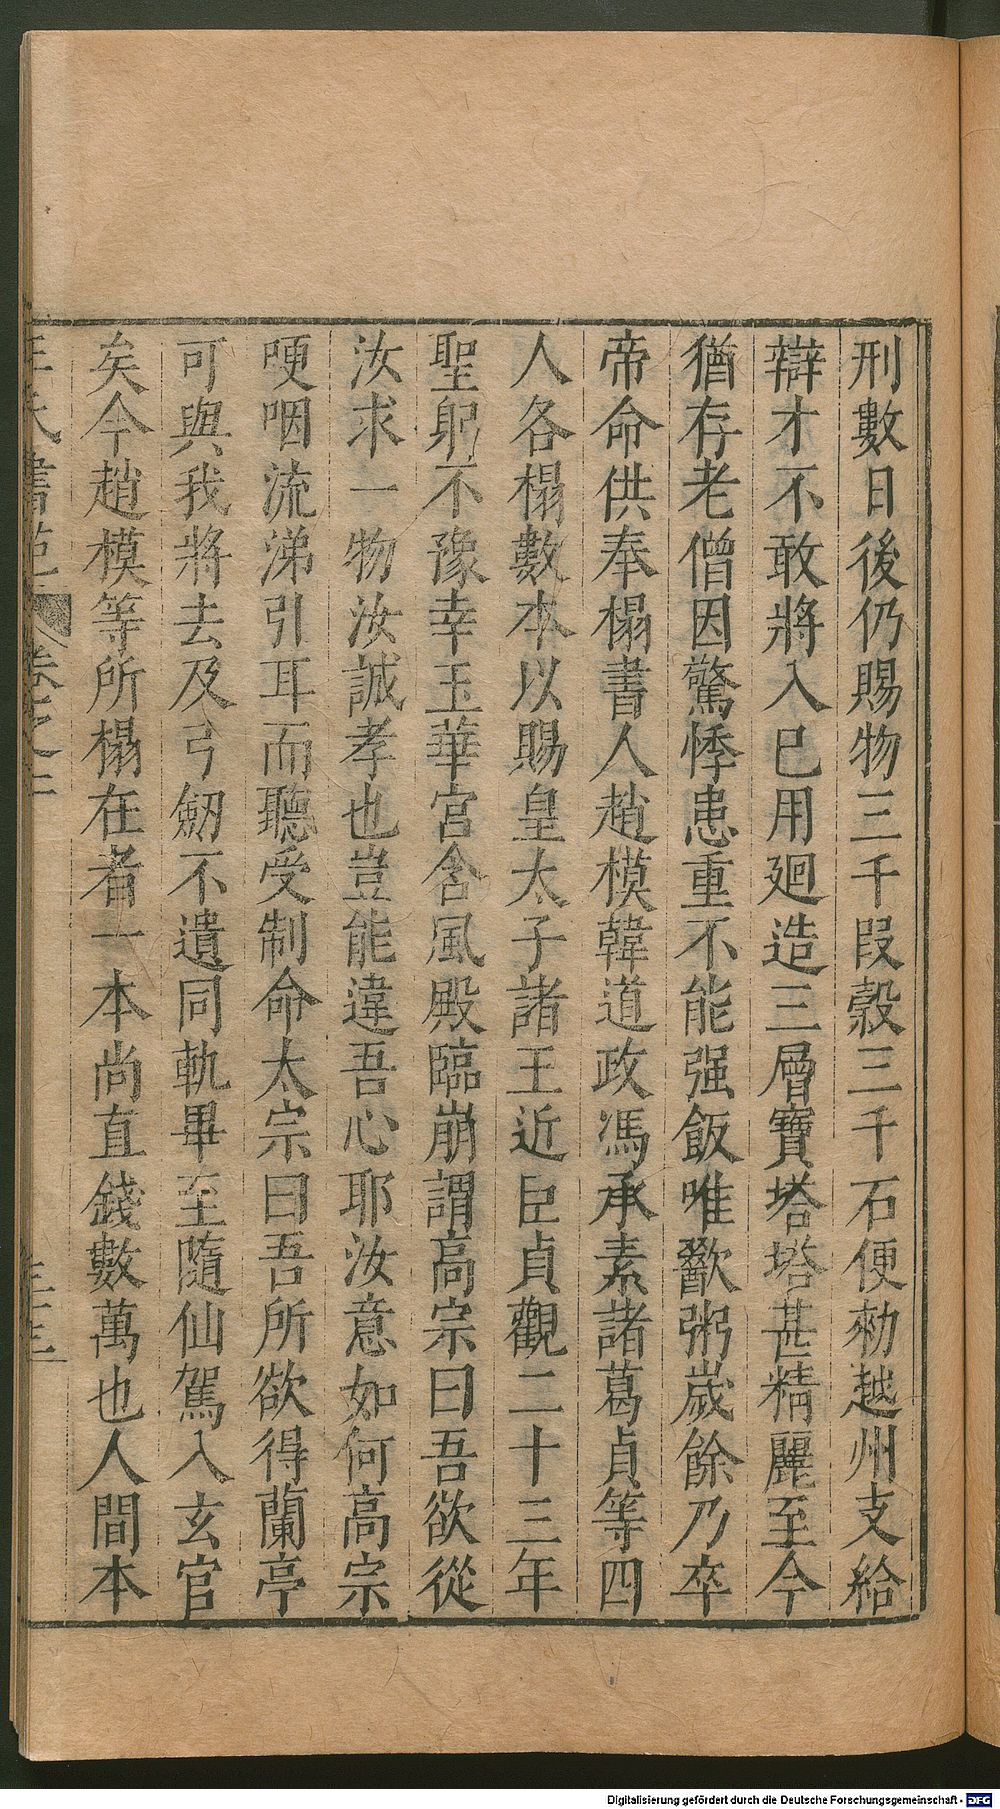 刑數日後仍賜物三千段糓三千石便勑越州支給
辯才不敢將入已用廻造三層寶塔塔甚精麗至今
猶存老僧因驚悸患重不能强飯唯歠粥歲餘乃卒
帝命供奉榻書人趙模韓道政馮承素諸葛貞等四
人各榻數本以賜皇太子諸王近臣貞觀二十三年
聖躬不豫幸玉華宮含風殿臨崩謂高宗曰吾欲從
汝求一物汝誠孝也豈能違吾心耶汝意如何高宗
哽咽流涕引耳而聽受制命太宗曰吾所欲得蘭亭
可與我將去及弓劒不遺同軌畢至隨仙駕入玄官
矣今趙模等所榻在者一本尚直錢數萬也人間本
王氏書苑 卷之三
Digitalisierung gefördert durch die Deutsche Forschungsgemeinschaft - DFG